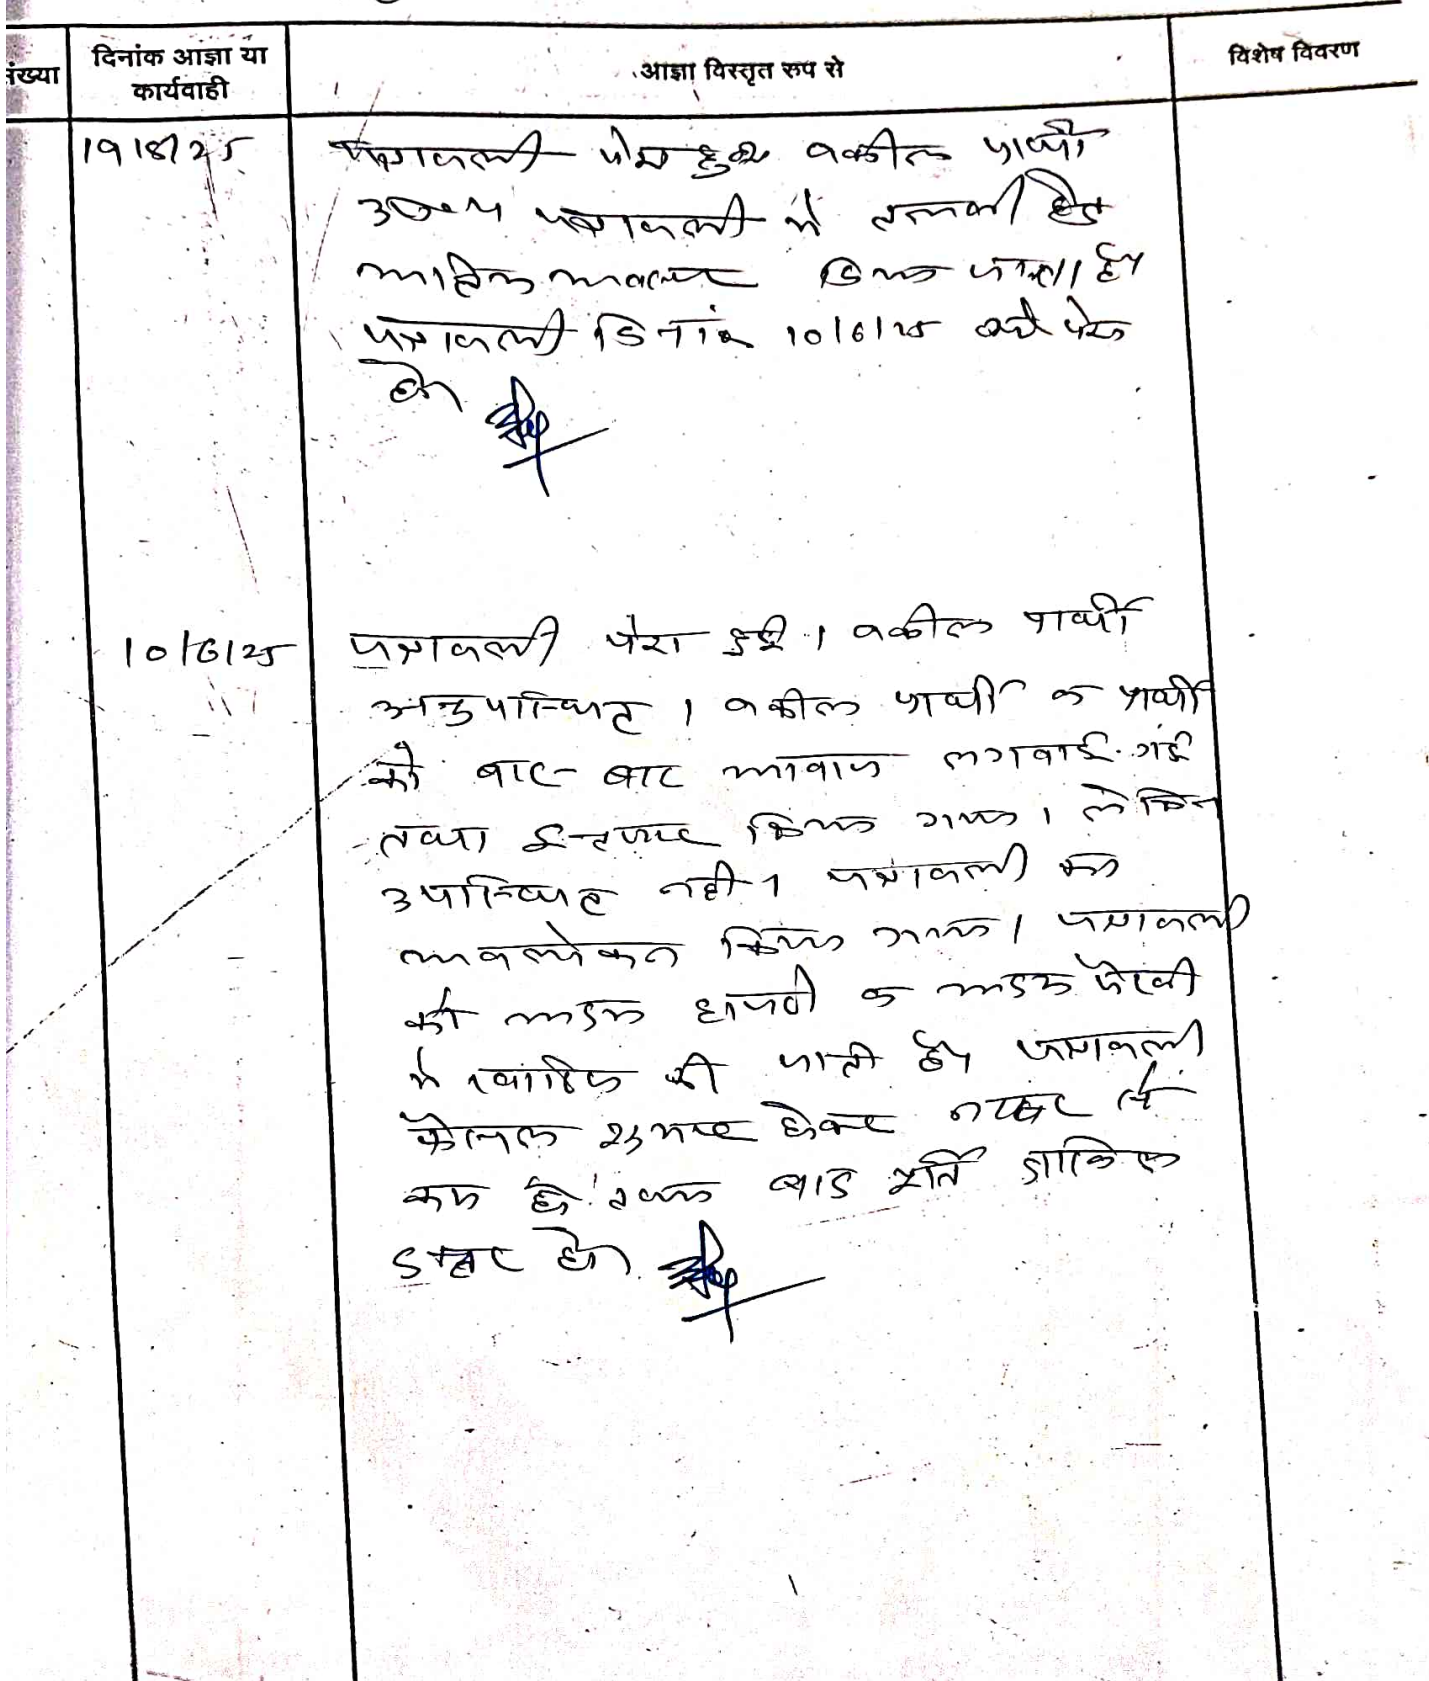 संख्या
दिनांक आज्ञा या
कार्यवाही
आज्ञा विस्तृत रुप से
विशेष विवरण
पत्रावली पेश हुई वकील प्रार्थी
पत्रावली में तलबी हेतु
अन्तिम अवसर दिया जाता है
पत्रावली दिनांक 10/6/25 को पेश
हो।
10/6/25
पत्रावली पेश हुई। वकील प्रार्थी
अनुपस्थित। वकील प्रार्थी व प्रार्थी
को बार-बार आवाज लगवाई गई
तथा इन्तजार किया गया। लेकिन
उपस्थित नही। पत्रावली का
अवलोकन किया गया। पत्रावली
को अदम हाजरी व अदम पैरवी
में खारिज की जाती है। पत्रावली
फैसल शुमार होकर नम्बर से
कम हो। बाद पूर्ति दाखिल
दफ्तर हो।